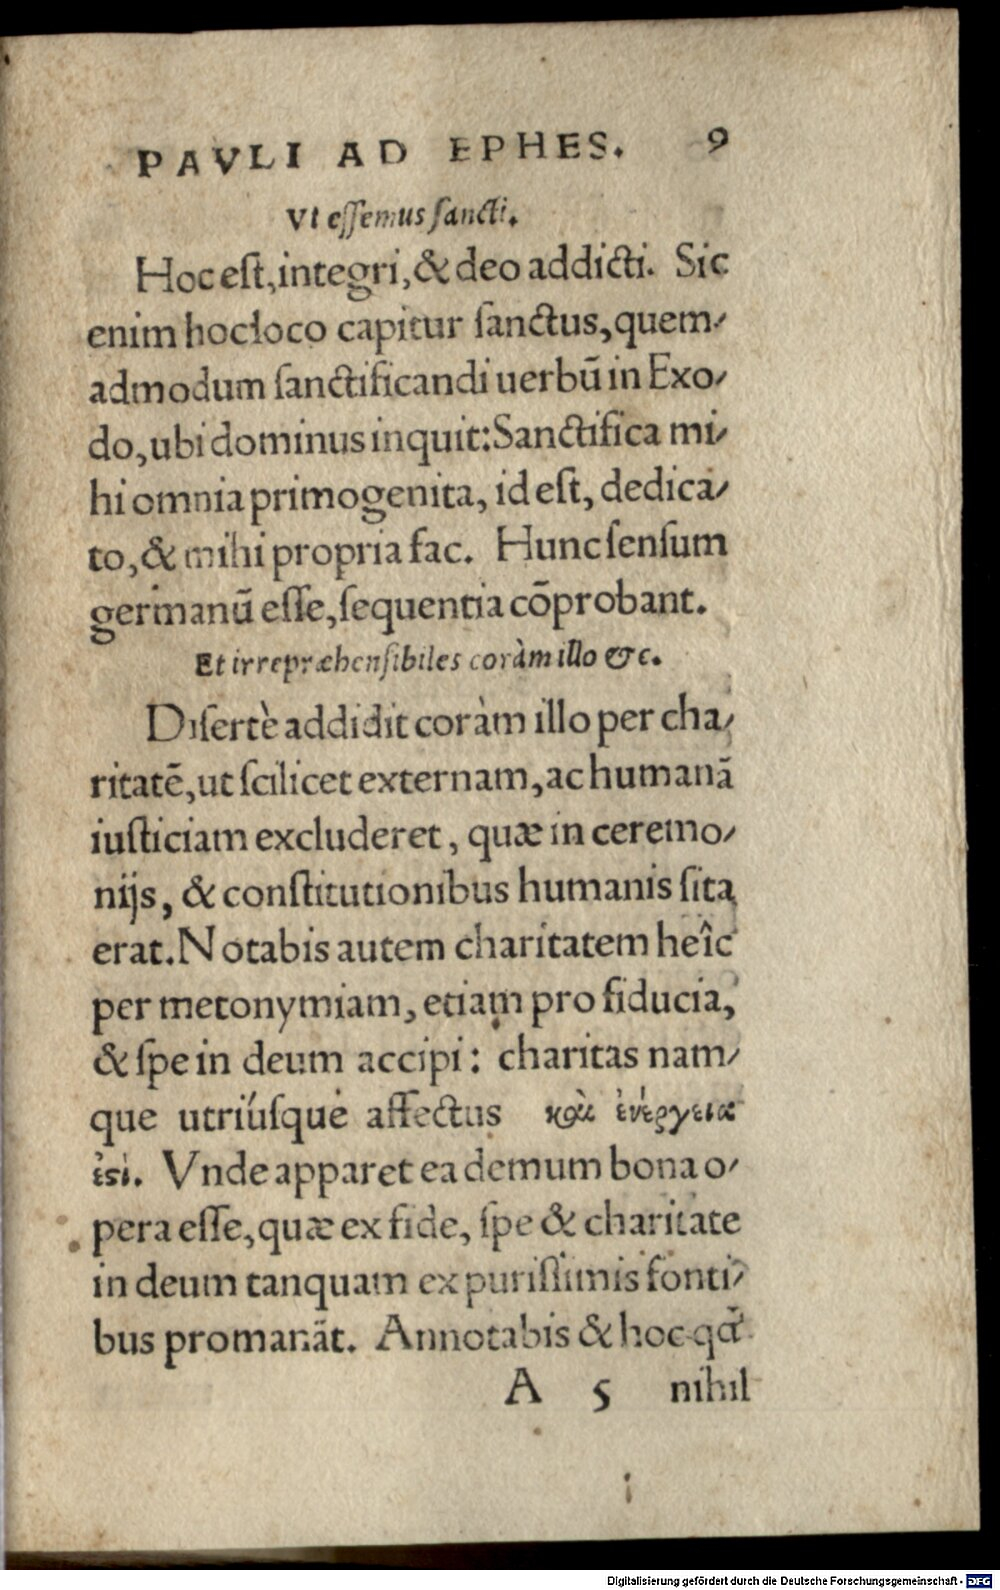 PAVLI AD EPHES. 9
Vt eſſemus ſancti.
Hoc eſt, integri, & deo addicti. Sic
enim hoc loco capitur ſanctus, quem⸗
admodum ſanctificandi uerbū in Exo⸗
do, ubi dominus inquit: Sanctifica mi⸗
hi omnia primogenita, id eſt, dedica⸗
to, & mihi propria fac. Hunc ſenſum
germanū eſſe, ſequentia cōprobant.
Et irrepræhenſibiles coràm illo &c.
Diſertè addidit coràm illo per cha⸗
ritatē, ut ſcilicet externam, ac humanā
iuſticiam excluderet, quæ in ceremo⸗
nijs, & conſtitutionibus humanis ſita
erat. Notabis autem charitatem heîc
per metonymiam, etiam pro fiducia,
& ſpe in deum accipi: charitas nam⸗
que utriúſque affectus καὶ ἐνέργεια
ἐϛι. Vnde apparet ea demum bona o⸗
pera eſſe, quæ ex fide, ſpe & charitate
in deum tanquam ex puriſſimis fonti⸗
bus promanāt. Annotabis & hoc qđ
A 5 nihil
Digitalisierung gefördert durch die Deutsche Forschungsgemeinschaft - DFG